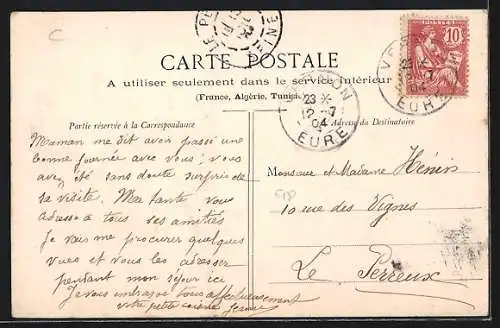 C
CARTE POSTALE
A utiliser seulement dans le service intérieur
(France, Algérie, Tunisie
LE PE
INE
10
VE
23 *
7
04
EURE
VERNON
23 *
12 - 7
04
EURE
Partie réservée à la Correspondance
Adresse du Destinataire
Maman me dit avoir passé une
bonne journée avec vous ; vous
avez été sans doute surprise de
sa visite. Ma tante vous
adresse à tous ses amitiés
Je vais me procurer quelques
vues et vous les adresser
pendant mon séjour ici
Je vous embrasse tous affectueusement
votre petite cousine Jeanne
Monsieur et Madame Hénin
10 rue des Vignes
Le Perreux